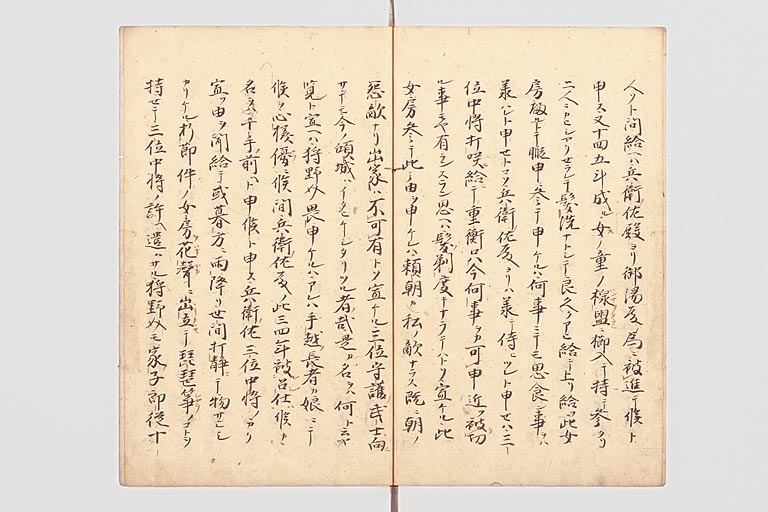 人ノト問給ヘハ兵衛佐殿ヨリ御湯殿ノ為ニ被進テ候ト
申ス又十四五斗成ル女ノ童ノ楾盥ニ櫛入テ持テ参タリ
二人シテ髪洗ナトシテ良久アヒ給テ上リ給ヌ此女
房殿ニテ暇申参ニテ申ケルハ何事ニテモ思食事ヲハ
義ハント申セトテコソ兵衛佐殿ヨリハ義テ侍ヒツレト申セハ三
位中将打咲給テ重衡只今何事ヲカ可申近ク被切
ル事モヤ有ランスラン思ヘハ髪剃度コソナラテハト宣ケル此
女房参テ此由ヲ申ケレハ頼朝カ私ノ敵ナラス既ニ朝ノ
怨敵ナリ出家ハ不可有トソ宣ケル三位守護武士ニ向
サテモ今ノ傾城ハイタヒケシタリツル者哉是カ名ヲハ何ト云ヤ
覧ト宣ヘハ狩野介畏申ケルハアレハ手越長者カ娘ニテ
候カ心様優ニ候間兵衛佐殿ノ此三四年被召仕候カ
名ヲハ千手前ト申候ト申ス兵衛佐三位中将ノカク
宣フ由ヲ聞給テ或暮方ニ雨降リ世間打静テ物サヒシ
カリケル折節件ノ女房花声ニ出立テ琵琶箏ノコトヲ
持セテ三位中将ノ許ヘ遣ハサル狩野介モ家子郎従十